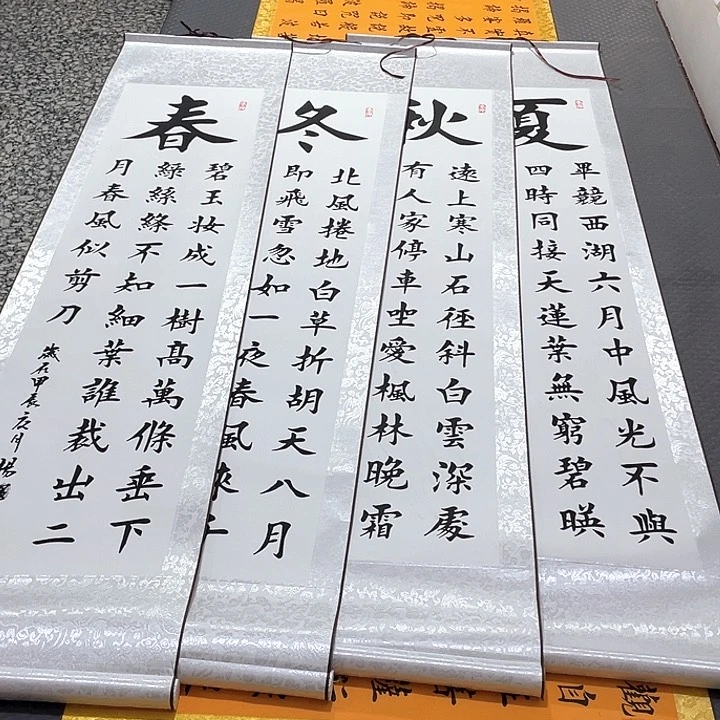 春
碧玉妆成一樹高萬條垂下
綠絲絛不知細葉誰裁出二
月春風似剪刀
歲在甲辰
冬
北風捲地白草折胡天八月
即飛雪忽如一夜春風
秋
遠上寒山石徑斜白雲深處
有人家停車坐愛楓林晚霜
夏
畢競西湖六月中風光不與
四時同接天蓮葉無窮碧暎